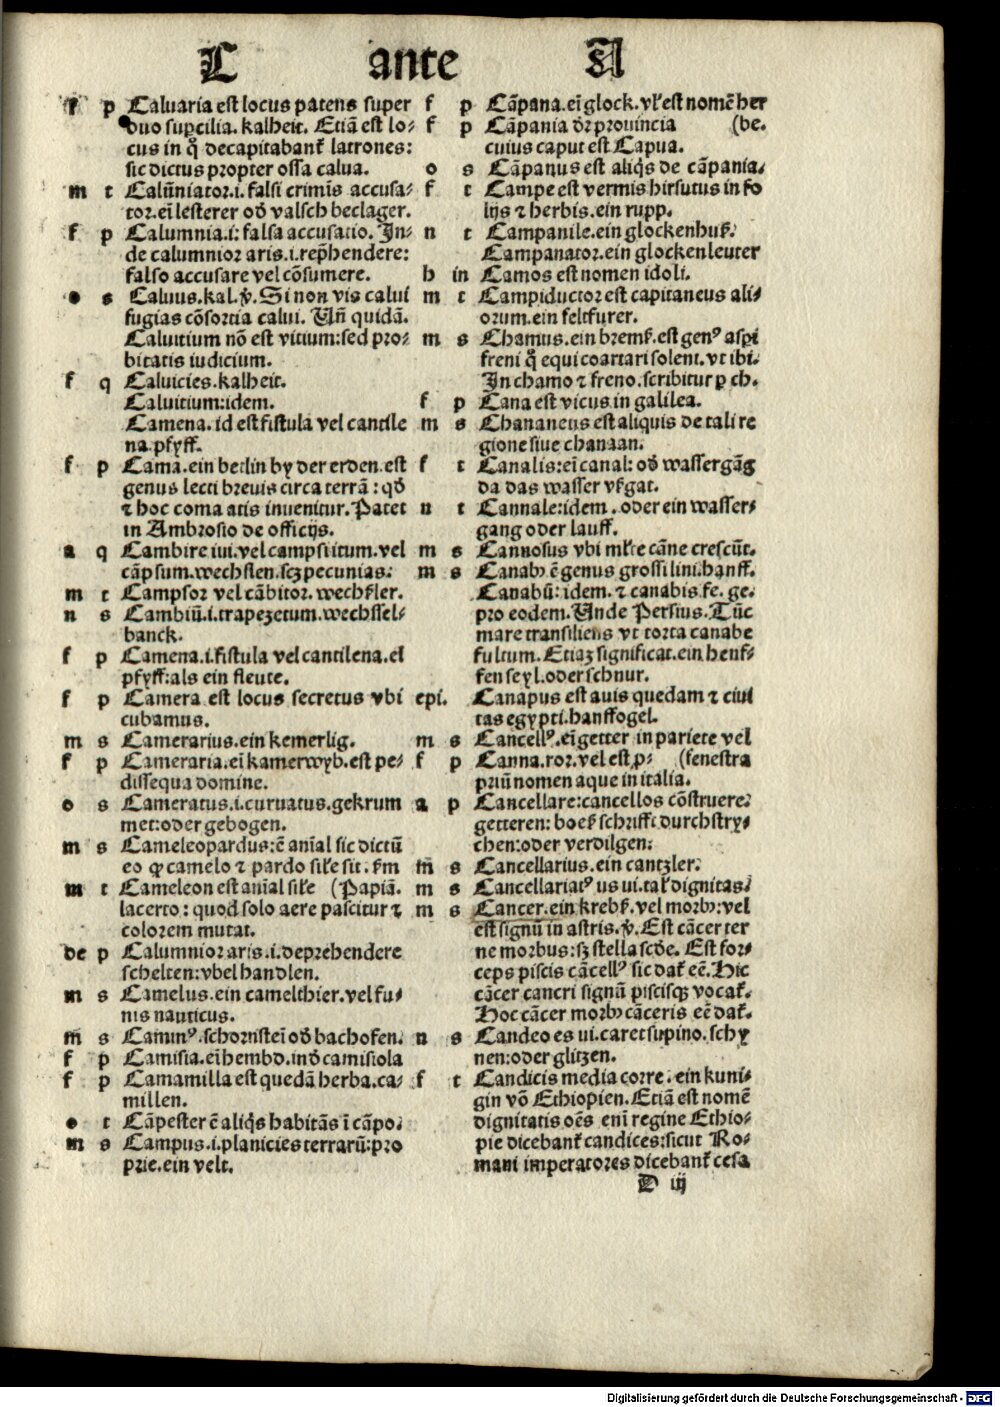 C ante A
f p Caluaria est locus patens super
duo sup̱cilia. kalheit. Etiā est lo⸗
cus in q̊ decapitabant᷑ latrones:
sic dictus propter ossa calua.
m t Calūniator.i. falsi crimīs accusa⸗
tor. eī lesterer od̕ valsch beclager.
f p Calumnia.i: falsa accusatio. In⸗
de calumnior aris.i.rep̄hendere:
falso accusare vel cōsumere.
o s Caluus.kal.v̕. Si non vis calui
fugias cōsortia calui. Un̄ quidā.
Caluitium nō est vitium:sed pro⸗
bitatis iudicium.
f q Caluicies.kalheit.
Caluitium:idem.
Camena. id est fistula vel cantile
na.pfyff.
f p Cama.ein betlin by der erden.est
genus lecti breuis circa terrā : qd̕
⁊ hoc coma atis inuenitur. Patet
in Ambrosio de officijs.
a q Cambire iui.vel campsi itum.vel
cāpsum.wechslen.scꝫ pecunias:
m t Campsor vel cābitor.wechsler.
n s Cambiū.i.trapezetum.wechssel⸗
banck.
f p Camena.i.fistula vel cantilena.el
pfyff:als ein fleute.
f p Camera est locus secretus vbi
cubamus.
m s Camerarius.ein kemerlig.
f p Cameraria.eī kamerwyb.est pe⸗
dissequa domine.
o s Cameratus.i.curuatus.gekrum
met:oder gebogen.
m s Cameleopardus:ē aīal sic dictū
eo ꝙ camelo ⁊ pardo sil᷑e sit. s᷑m
m t Cameleon est aīal sil᷑e (Papiā.
lacerto : quod solo aere pascitur ⁊
colorem mutat.
de p Calumnior aris.i.deprehendere
schelten:vbel handlen.
m s Camelus.ein camelthier.vel fu⸗
nis nauticus.
m s Caminꝰ.schornsteī od̕ bachofen.
f p Camisia.eī hembd.ind̕ camisiola
f p Camamilla est quedā herba.ca⸗
millen.
o t Cāpester ē aliq̇s habitās ī cāpo.
m s Campus.i.planicies terrarū:pro
prie.ein velt.
f p Cāpana.eī glock.vl᷑ est nomē her
f p Cāpania dr̄ prouincia (be.
cuius caput est Capua.
o s Cāpanus est aliq̇s de cāpania.
f t Campe est vermis hirsutus in fo
lijs ⁊ herbis.ein rupp.
n t Campanile.ein glockenhuß.
Campanator.ein glockenleuter
h in Camos est nomen idoli.
m t Campiductor est capitaneus ali⸗
orum.ein feltfurer.
m s Chamus.ein bremß.est genꝰ asp̱i
freni q̊ equi coartari solent.vt ibi.
In chamo ⁊ freno.scribitur ꝑ ch.
f p Cana est vicus in galilea.
m s Chananeus est aliquis de tali re
gione siue chanaan.
f t Canalis:eī canal: od̕ wassergāg
da das wasser vßgat.
n t Cannale:idem . oder ein wasser⸗
gang oder lauff.
m s Cannosus vbi ml᷑te cāne crescūt.
m s Canabꝰ ē genus grossi lini.hanff.
Canabū: idem. ⁊ canabis.fe. ge.
pro eodem. Unde Persius. Tūc
mare transiliens vt torta canabe
fultum. Etiaꝫ significat.ein henf⸗
fen seyl.oder schnur.
epi. Canapus est auis quedam ⁊ ciui
tas egypti.hanffogel.
m s Cancellꝰ.eī getter in pariete vel
f p Canna.ror.vel est ꝓ⸗ (fenestra
priū nomen aque in italia.
a p Cancellare:cancellos cōstruere:
getteren: boeß schrifft durchstry⸗
chen:oder verdilgen:
m s Cancellarius.ein cantzler.
m s Cancellariatꝰ us ui.tal᷑ dignitas.
m s Cancer.ein krebß.vel morbꝰ:vel
est signū in astris.v̕. Est cācer ter
ne morbus:sꝫ stella scd̕e. Est for⸗
ceps piscis cācellꝰ sic dat᷑ eē. Hic
cācer cancri signū piscisqꝫ vocat᷑.
Hoc cācer morbꝰ cāceris eē dat᷑.
n s Candeo es ui.caret supino.schy
nen:oder glitzen.
f t Candicis media corre. ein kuni⸗
gin vō Ethiopien. Etiā est nomē
dignitatis oēs enī regine Ethio⸗
pie dicebant᷑ candices:sicut Ro⸗
mani imperatores dicebant᷑ cesa
D iij
Digitalisierung gefördert durch die Deutsche Forschungsgemeinschaft - DFG